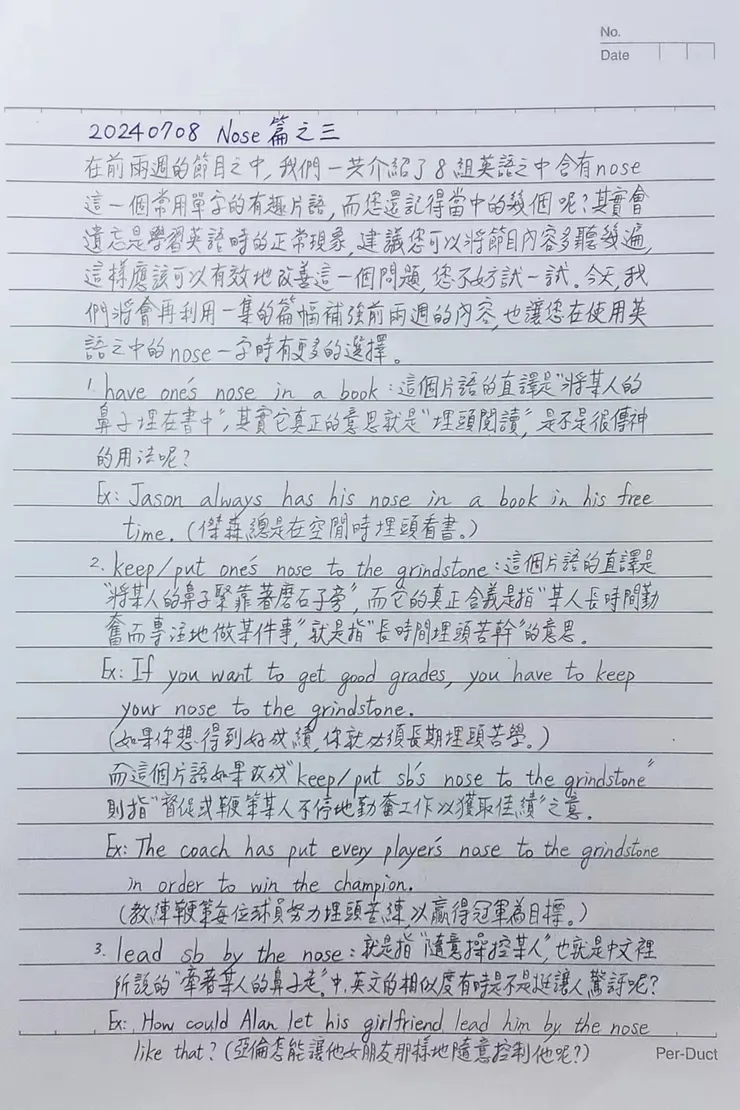 No.
Date
20240708 Nose篇之三
在前兩週的節目之中，我們一共介紹了8組英語之中含有nose
這一個常用單字的有趣片語，而您還記得當中的幾個呢？其實會
遺忘是學習英語時的正常現象，建議您可以將節目內容多聽幾遍，
這樣應該可以有效地改善這一個問題，您不妨試一試。今天，我
們將會再利用一集的篇幅補強前兩週的內容，也讓您在使用英
語之中的nose一字時有更多的選擇。
1. have one's nose in a book：這個片語的直譯是"將某人的
鼻子埋在書中"，其實它真正的意思就是"埋頭閱讀"，是不是很傳神
的用法呢？
Ex: Jason always has his nose in a book in his free
time.（傑森總是在空閒時埋頭看書。）
2. keep/put one's nose to the grindstone：這個片語的直譯是
"將某人的鼻子緊靠著磨石子旁"，而它的真正含義是指"某人長時間勤
奮而專注地做某件事"，就是指"長時間埋頭苦幹"的意思。
Ex: If you want to get good grades, you have to keep
your nose to the grindstone.
（如果你想得到好成績，你就必須長期埋頭苦學。）
而這個片語如果改成"keep/put sb's nose to the grindstone"
則指"督促或鞭策某人不停地勤奮工作以獲取佳績"之意。
Ex: The coach has put every player's nose to the grindstone
in order to win the champion.
（教練鞭策每位球員努力埋頭苦練，以贏得冠軍為目標。）
3. lead sb by the nose：就是指"隨意操控某人"，也就是中文裡
所說的"牽著某人的鼻子走"。中、英文的相似度有時是不是挺讓人驚訝呢？
Ex: How could Alan let his girlfriend lead him by the nose
like that?（亞倫怎能讓他女朋友那樣地隨意控制他呢？）
Per-Duct